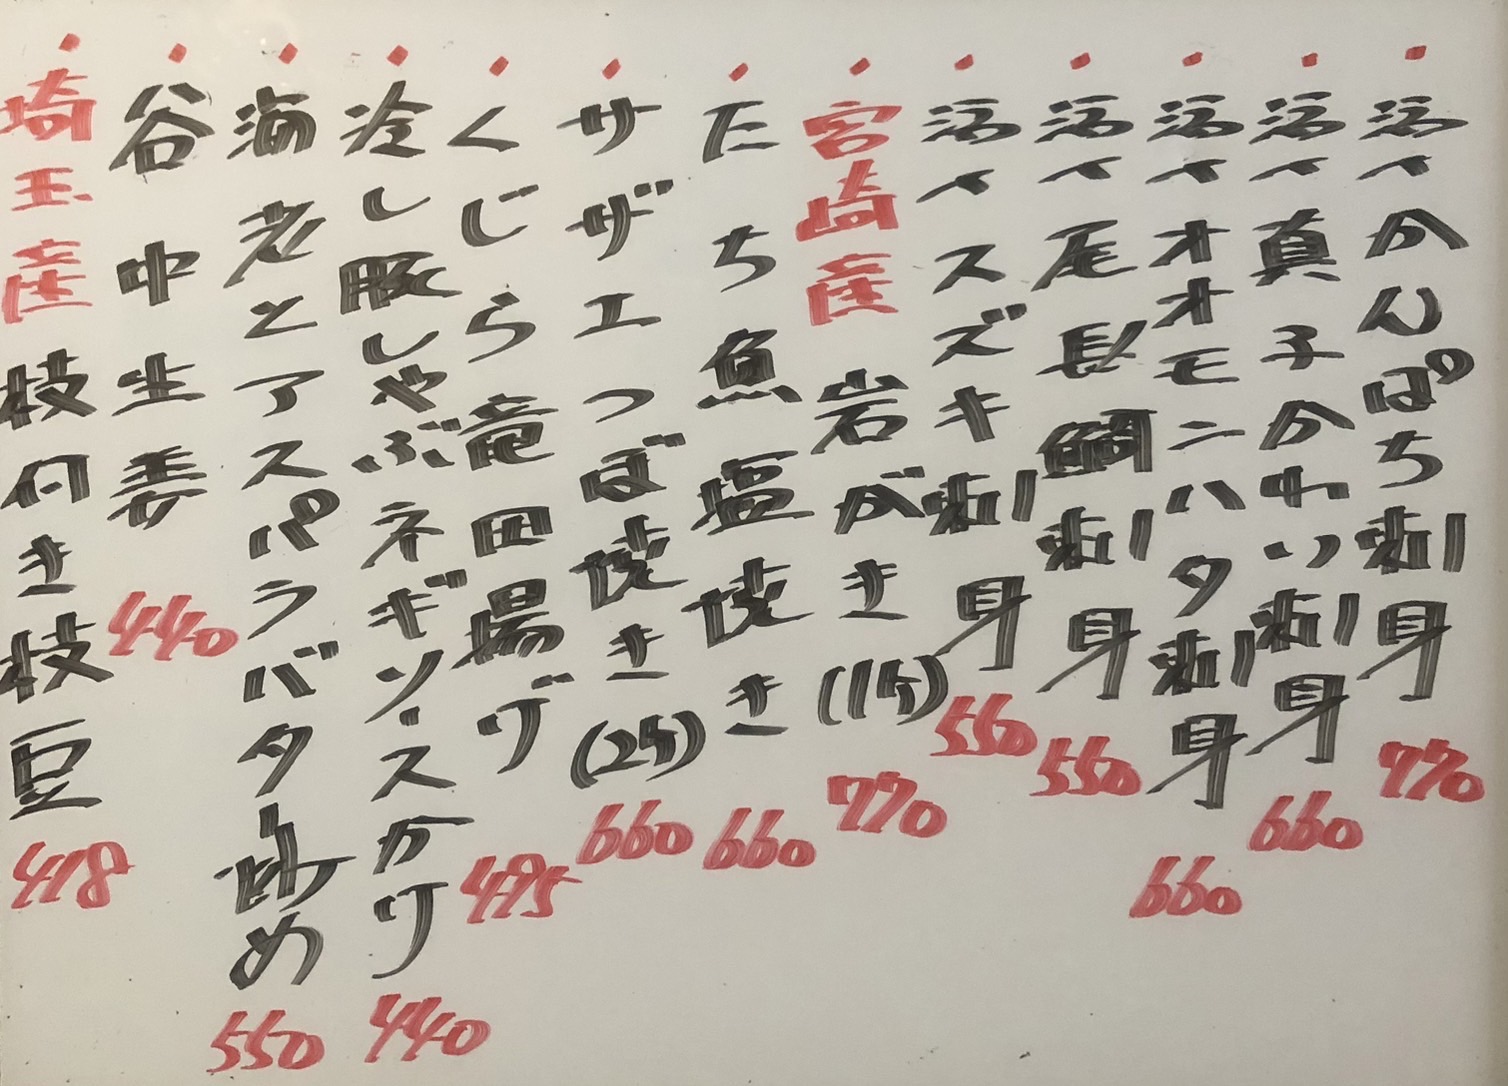 ・活〆かんぱち刺身 770
・活〆真子かれい刺身 660
・活〆オオモンハタ刺身 660
・活〆尾長鯛刺身 550
・活〆スズキ刺身 550
・宮崎産 岩がき(1ケ) 770
・たち魚塩焼き 660
・サザエつぼ焼き(2ケ) 660
・くじら竜田揚げ 495
・冷し豚しゃぶネギソースかけ 440
・海老とアスパラバター炒め 550
・谷中生姜 440
・埼玉産 枝付き枝豆 418